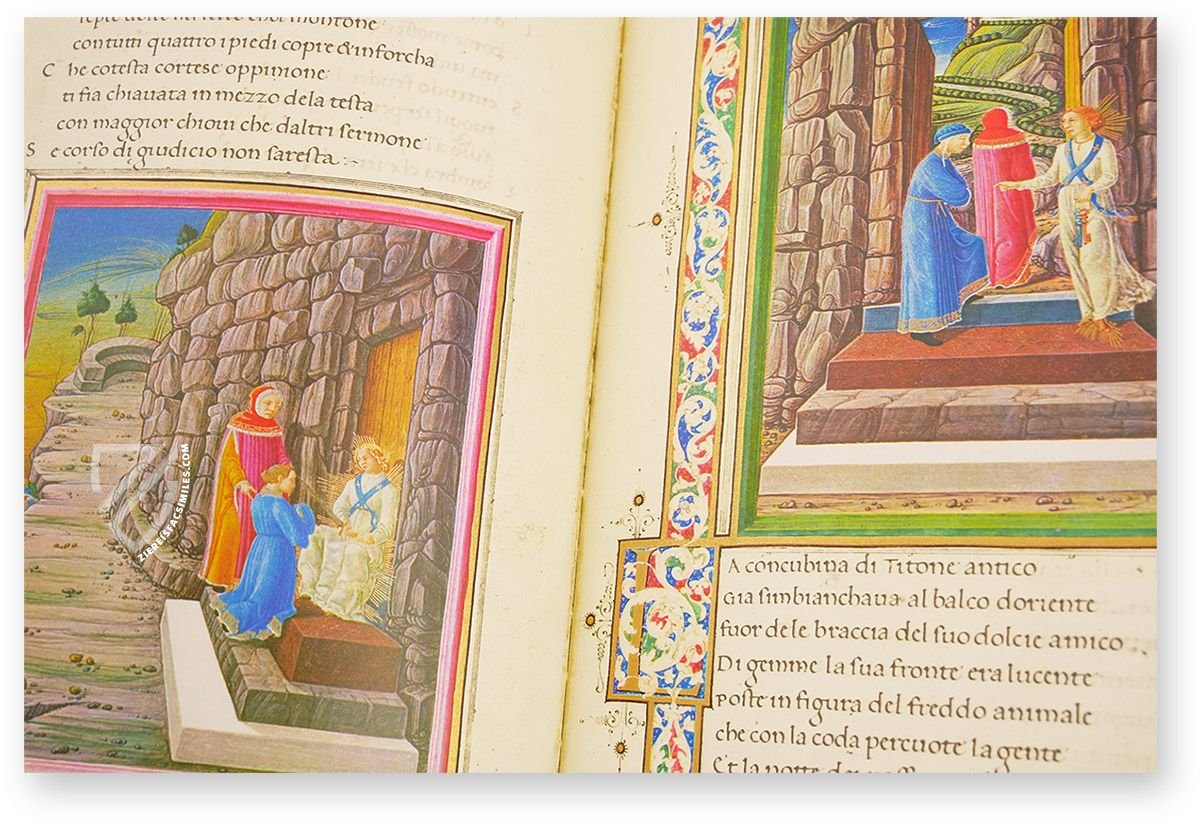 con tutti quattro i piedi copre & inforcha
C he cotesta cortese oppinione
ti fia chiavata in mezzo dela testa
con maggior chiovi che daltri sermone
S e corso di giudicio non saresta
ZIEREISFACSIMILES.COM
L A concubina di Titone antico
Gia simbianchava al balco doriente
fuor de le braccia del suo dolcie amico
Di gemme la sua fronte era lucente
Poste in figura del freddo animale
che con la coda percuote la gente